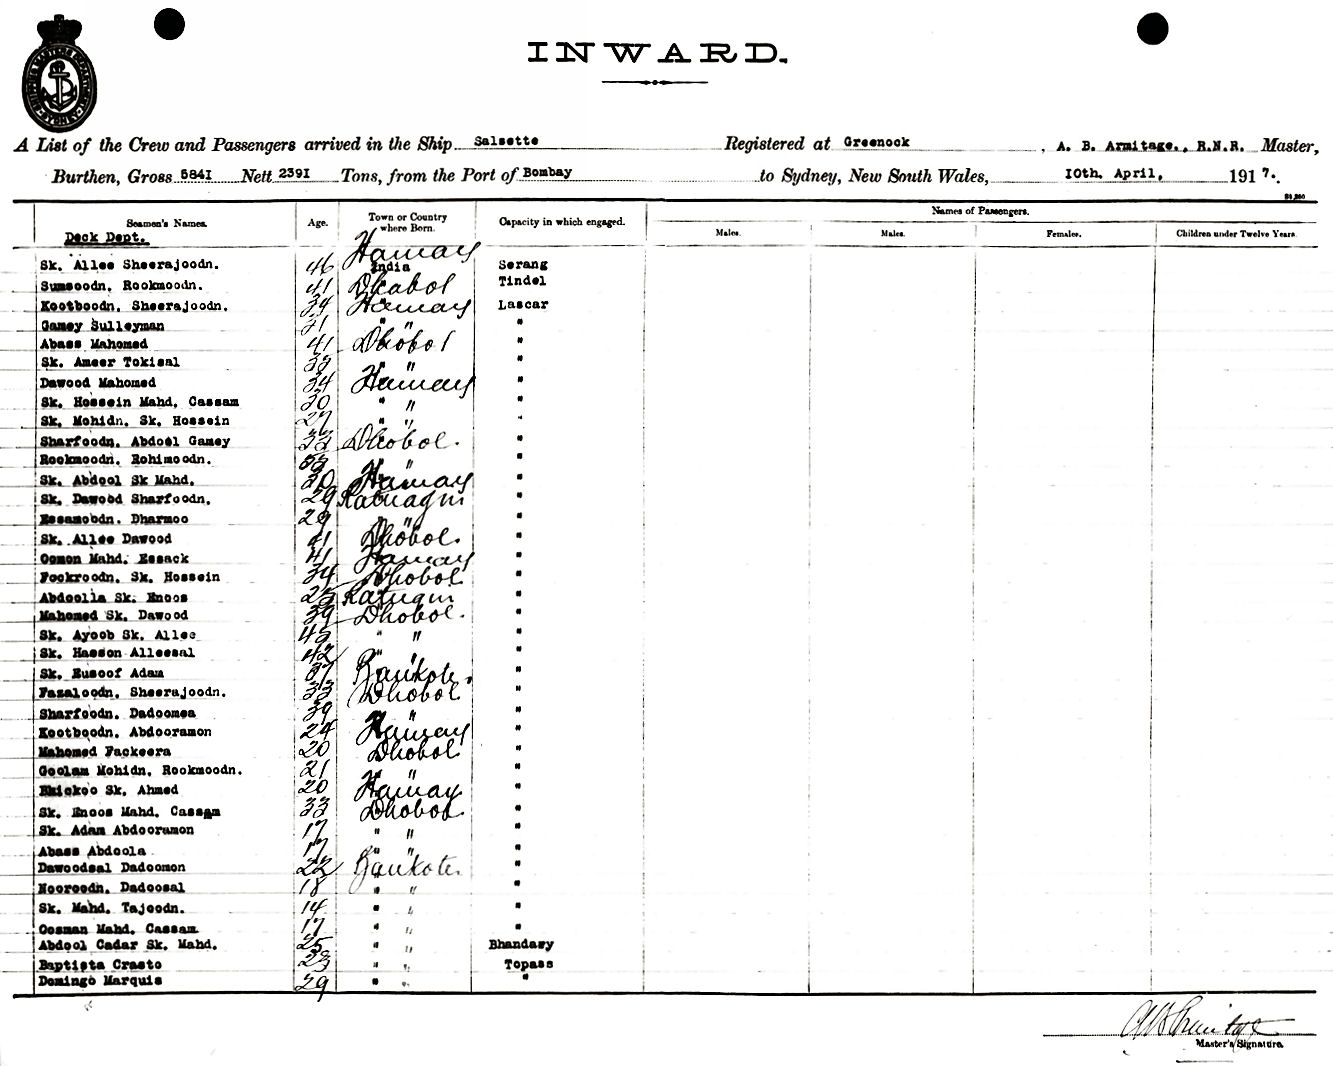 INWARD.
A List of the Crew and Passengers arrived in the Ship Salsette Registered at Greenock , A. B. Armitage., R.N.R. Master,
Burthen, Gross 5841 Nett 2391 Tons, from the Port of Bombay to Sydney, New South Wales, 10th. April, 1917.
Seamen's Names. Age. Town or Country where Born. Capacity in which engaged. Names of Passengers.
Males. Males. Females. Children under Twelve Years.
Deck Dept.
Sk. Allee Sheerajoodn. 46 Harnay India Serang
Sumsoodn. Rookmoodn. 41 Dhabol Tindel
Kootboodn. Sheerajoodn. 34 Harnay Lascar
Gamey Sulleyman 31 " " "
Abass Mahomed 41 Dhobol "
Sk. Ameer Tokisal 33 " " "
Dawood Mahomed 34 Harnay "
Sk. Hossein Mahd. Cassam 30 " " "
Sk. Mohidn. Sk. Hossein 27 " " "
Sharfoodn. Abdoel Gamey 33 Dhobol. "
Rookmoodn. Rohimoodn. " " "
Sk. Abdool Sk Mahd. 30 Harnay "
Sk. Dawood Sharfoodn. 29 Ratnagiri "
Essamobdn. Dharmoo 29 " " "
Sk. Allee Dawood 41 Dhobol. "
Oomon Mahd. Essack 41 Harnay "
Fockroodn. Sk. Hossein 34 Dhobol "
Abdoolla Sk. Enoos 25 Ratngiri "
Mahomed Sk. Dawood 39 Dhobol. "
Sk. Ayoob Sk. Allee 45 " " "
Sk. Hasson Alleesal 42 " " "
Sk. Eusoof Adam 37 Bankote. "
Fazaloodn. Sheerajoodn. 33 Dhobol "
Sharfoodn. Dadoomea 39 " "
Kootboodn. Abdooramon 24 Harnay "
Mahomed Fackeera 20 Dhobol "
Goolam Mohidn. Rookmoodn. 21 " "
Bhickoo Sk. Ahmed 20 Harnay "
Sk. Enoos Mahd. Cassam 33 Dhobol "
Sk. Adam Abdooramon 17 " " "
Abass Abdoola 17 " " "
Dawoodsal Dadoomon 22 Bankote. "
Nooroodn. Dadoosal 18 " " "
Sk. Mahd. Tajoodn. 14 " " "
Oosman Mahd. Cassam 17 " " "
Abdool Cadar Sk. Mahd. 25 " " Bhandary
Baptista Crasto 23 " " Topass
Domingo Marquis 29 " " "
Master's Signature.